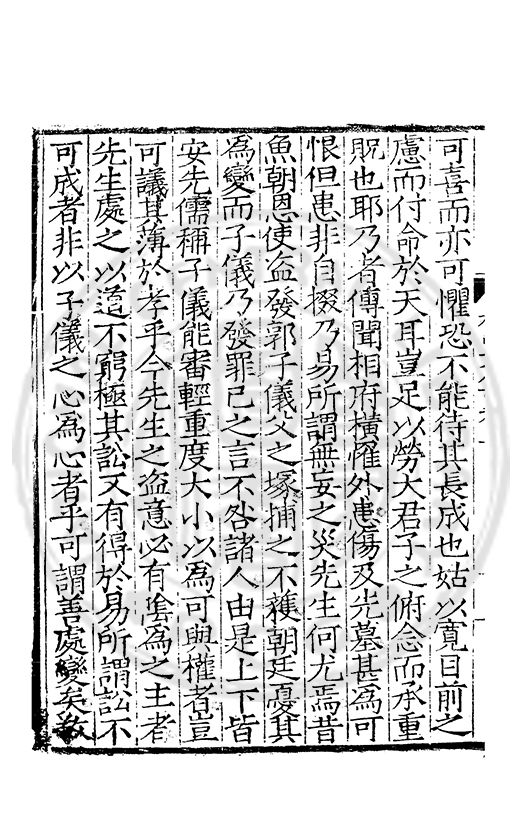 可喜而亦可懼恐不能待其長成也姑以寬目前之
慮而付命於天耳豈足以勞大君子之俯念而承重
貺也耶乃者傳聞相府橫罹外患傷及先墓甚為可
恨但患非自掇乃易所謂無妄之災先生何尤焉昔
魚朝恩使盜發郭子儀父之塚捕之不獲朝廷憂其
為變而子儀乃發罪己之言不咎諸人由是上下皆
安先儒稱子儀能審輕重度大小以為可與權者豈
可議其薄於孝乎今先生之盜意必有陰為之主者
先生處之以道不窮極其訟又有得於易所謂訟不
可成者非以子儀之心為心者乎可謂善處變矣敬